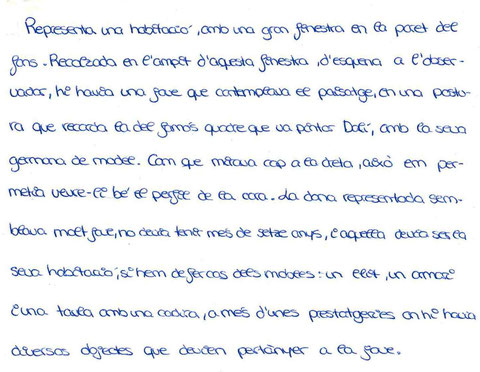 Representa una habitació, amb una gran finestra en la paret del
fons. Recolzada en l'ampit d'aquesta finestra, d'esquena a l'obser-
vador, hi havia una jove que contemplava el paisatge, en una postu-
ra que recorda la del famós quadre que va pintar Dalí, amb la seva
germana de model. Com que mirava cap a la dreta, això em per-
metia veure-li bé el perfil de la cara. La dona representada sem-
blava molt jove, no devia tenir més de setze anys, i aquella devia ser la
seva habitació, si hem de fer cas dels mobles: un llit, un armari
i una taula amb una cadira, a més d'unes prestatgeries on hi havia
diversos objectes que devien pertànyer a la jove.